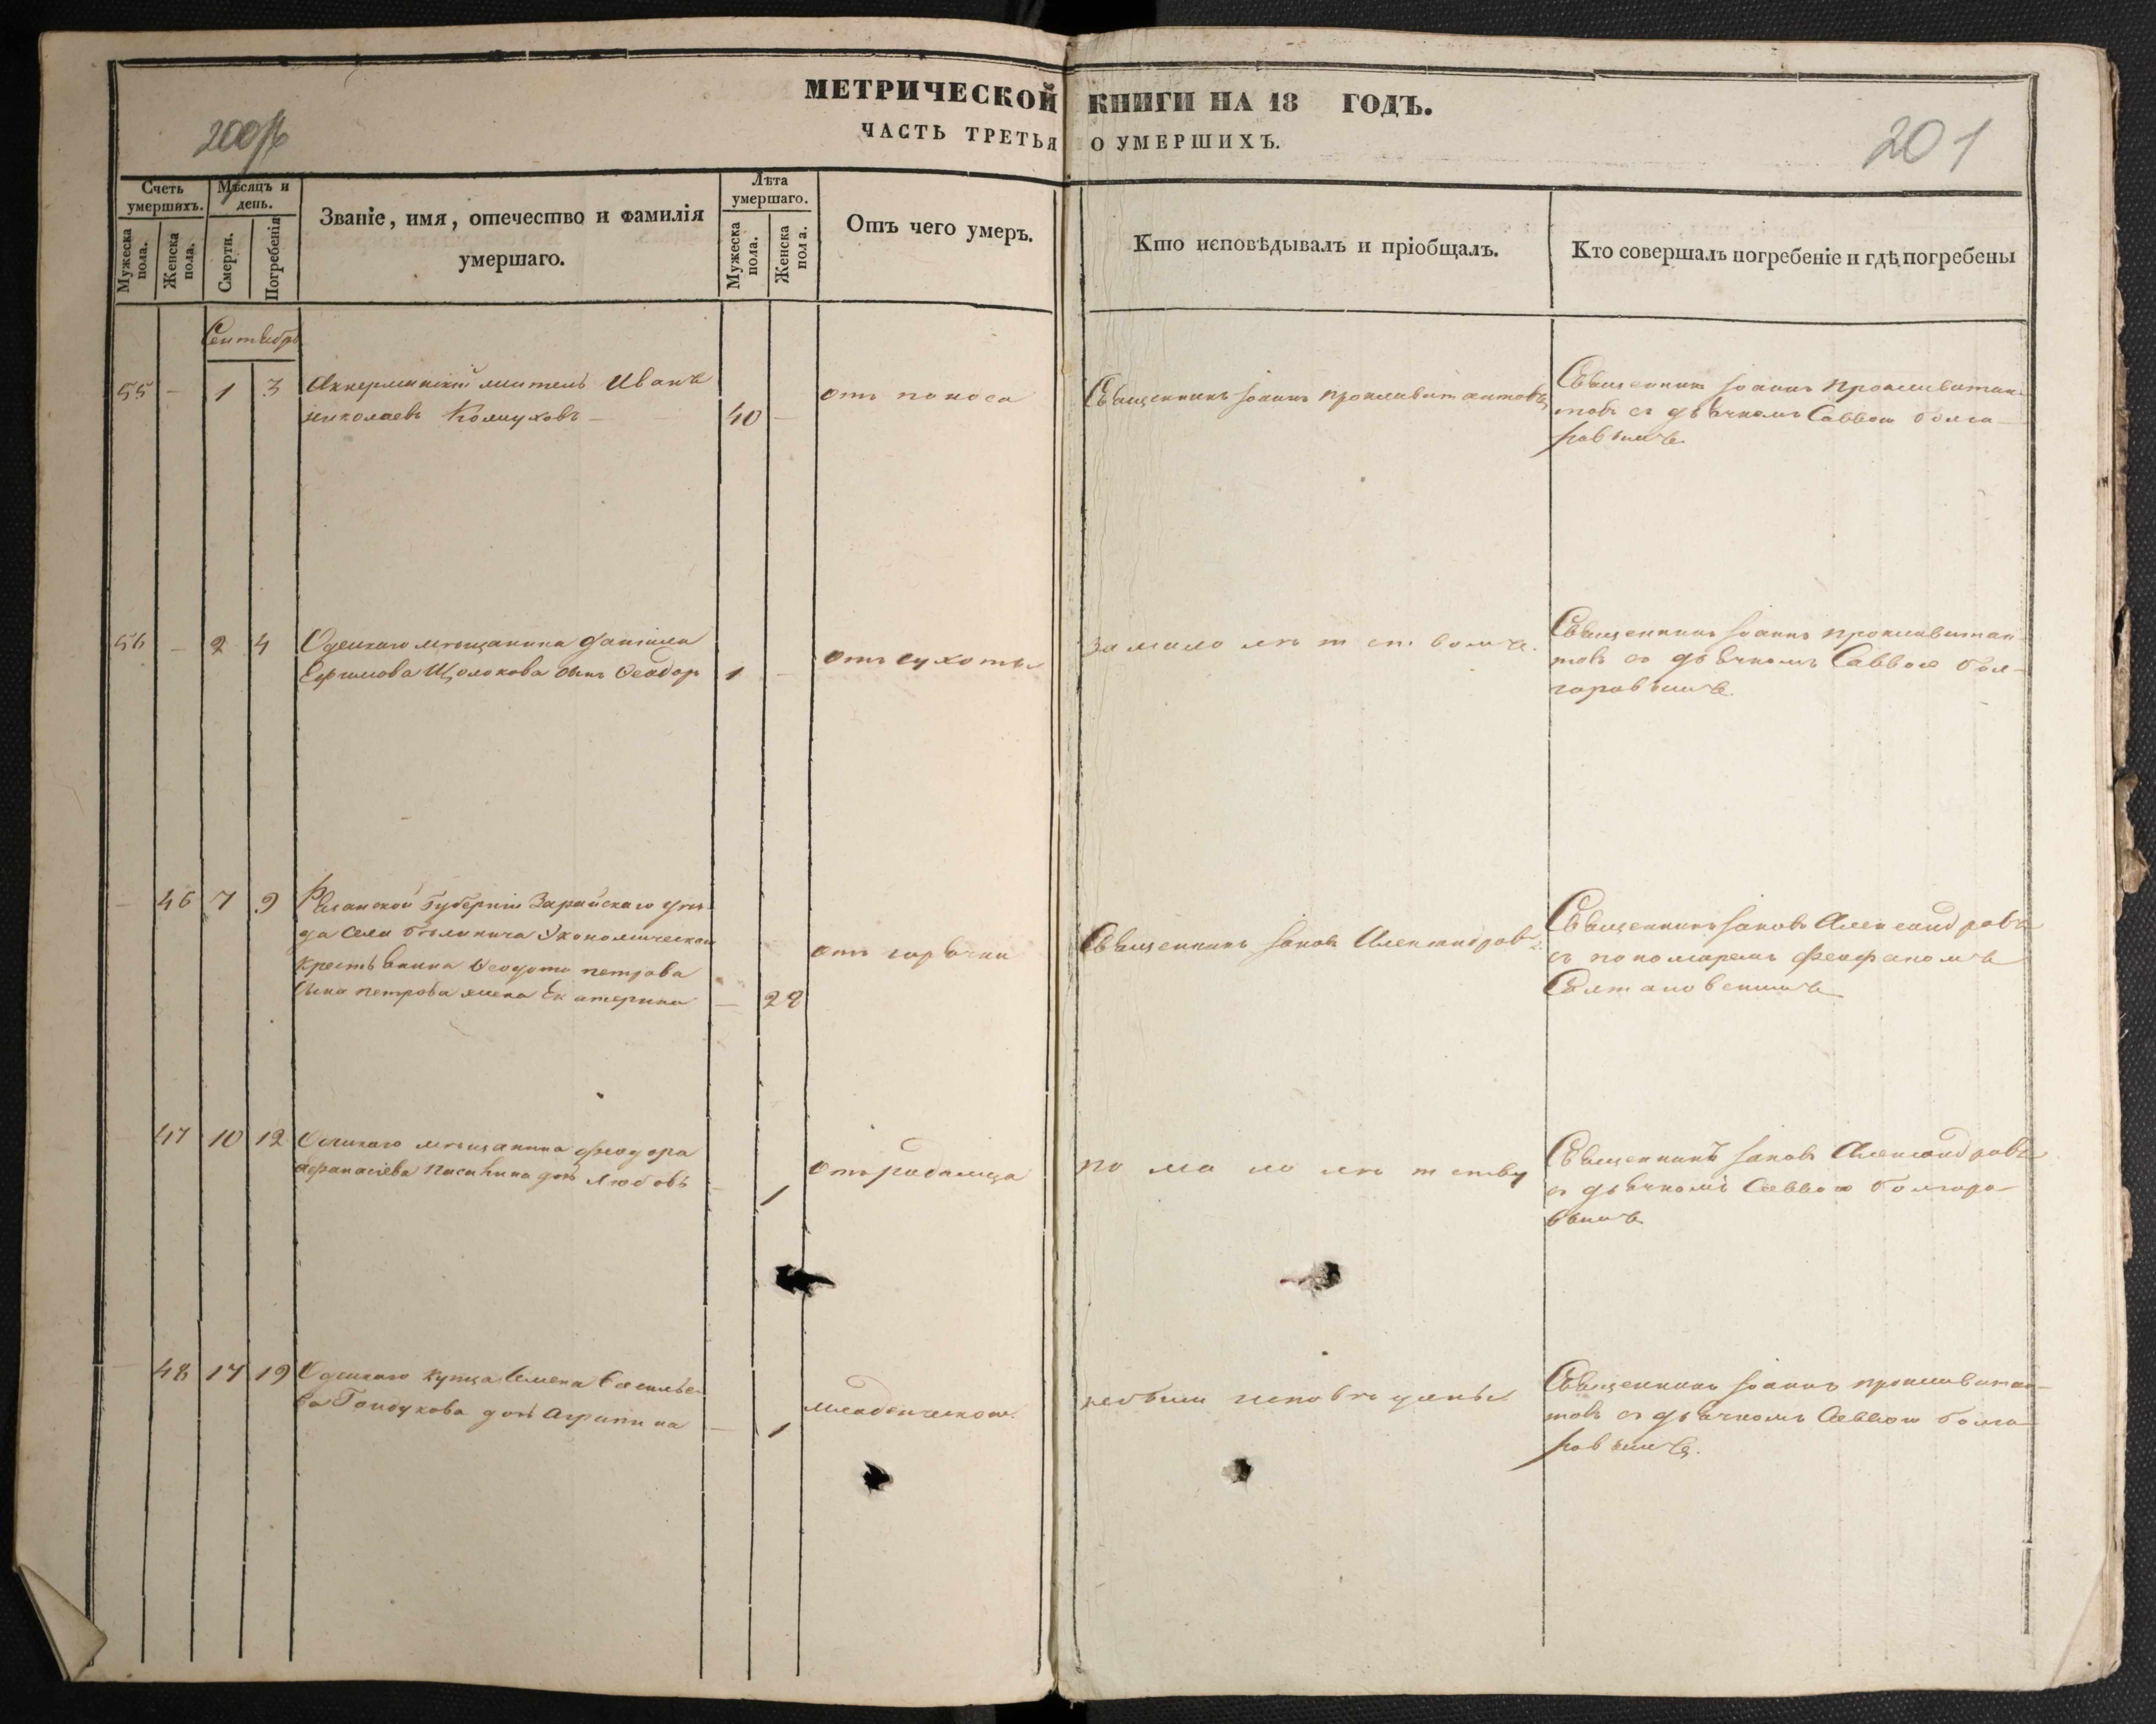 МЕТРИЧЕСКОЙ КНИГИ НА 18 ГОДЪ.
ЧАСТЬ ТРЕТЬЯ О УМЕРШИХЪ.
200
201
Счетъ умершихъ.
Мужеска пола.
Женска пола.
Мѣсяцъ и день.
Смерти.
Погребенія
Званіе, имя, отечество и фамилія
умершаго.
Лѣта умершаго.
Мужеска пола.
Женска пола.
Отъ чего умеръ.
Кто исповѣдывалъ и пріобщалъ.
Кто совершалъ погребеніе и гдѣ погребены
Сентябрь
55 – 1 3 Аккерманскій житель Иванъ
николаевъ 40 –
отъ поноса
Священникъ Іоаннъ
Священникъ Іоаннъ
товъ съ дьячкомъ Саввою болга
56 – 2 4 Одескаго мѣщанина Даніила
Ефимова Щолокова сынъ Ѳеодоръ 1 –
отъ сухоты
за малолѣтствомъ.
Священникъ Іоаннъ
товъ съ дьячкомъ Саввою бол
– 46 7 9 Рязанской губерніи Зарайскаго уѣз
да села Экономическаго
крестьянина Ѳеодота петрова
сына петрова жена Екатерина – 28
отъ горячки
Священникъ Іаковъ Александровъ
Священникъ Іаковъ Александровъ
съ пономаремъ Феофаномъ
47 10 12 Одескаго мѣщанина Феодора
Афанасіева дочь Любовь – 1
отъ родимца
по малолѣтству
Священникъ Іаковъ Александровъ
съ дьячкомъ Саввою болгаро
– 48 17 19 Одескаго купца Семена Василье
ва дочь Агрипина – 1
младенческой.
Священникъ Іоаннъ
товъ съ дьячкомъ Саввою болга